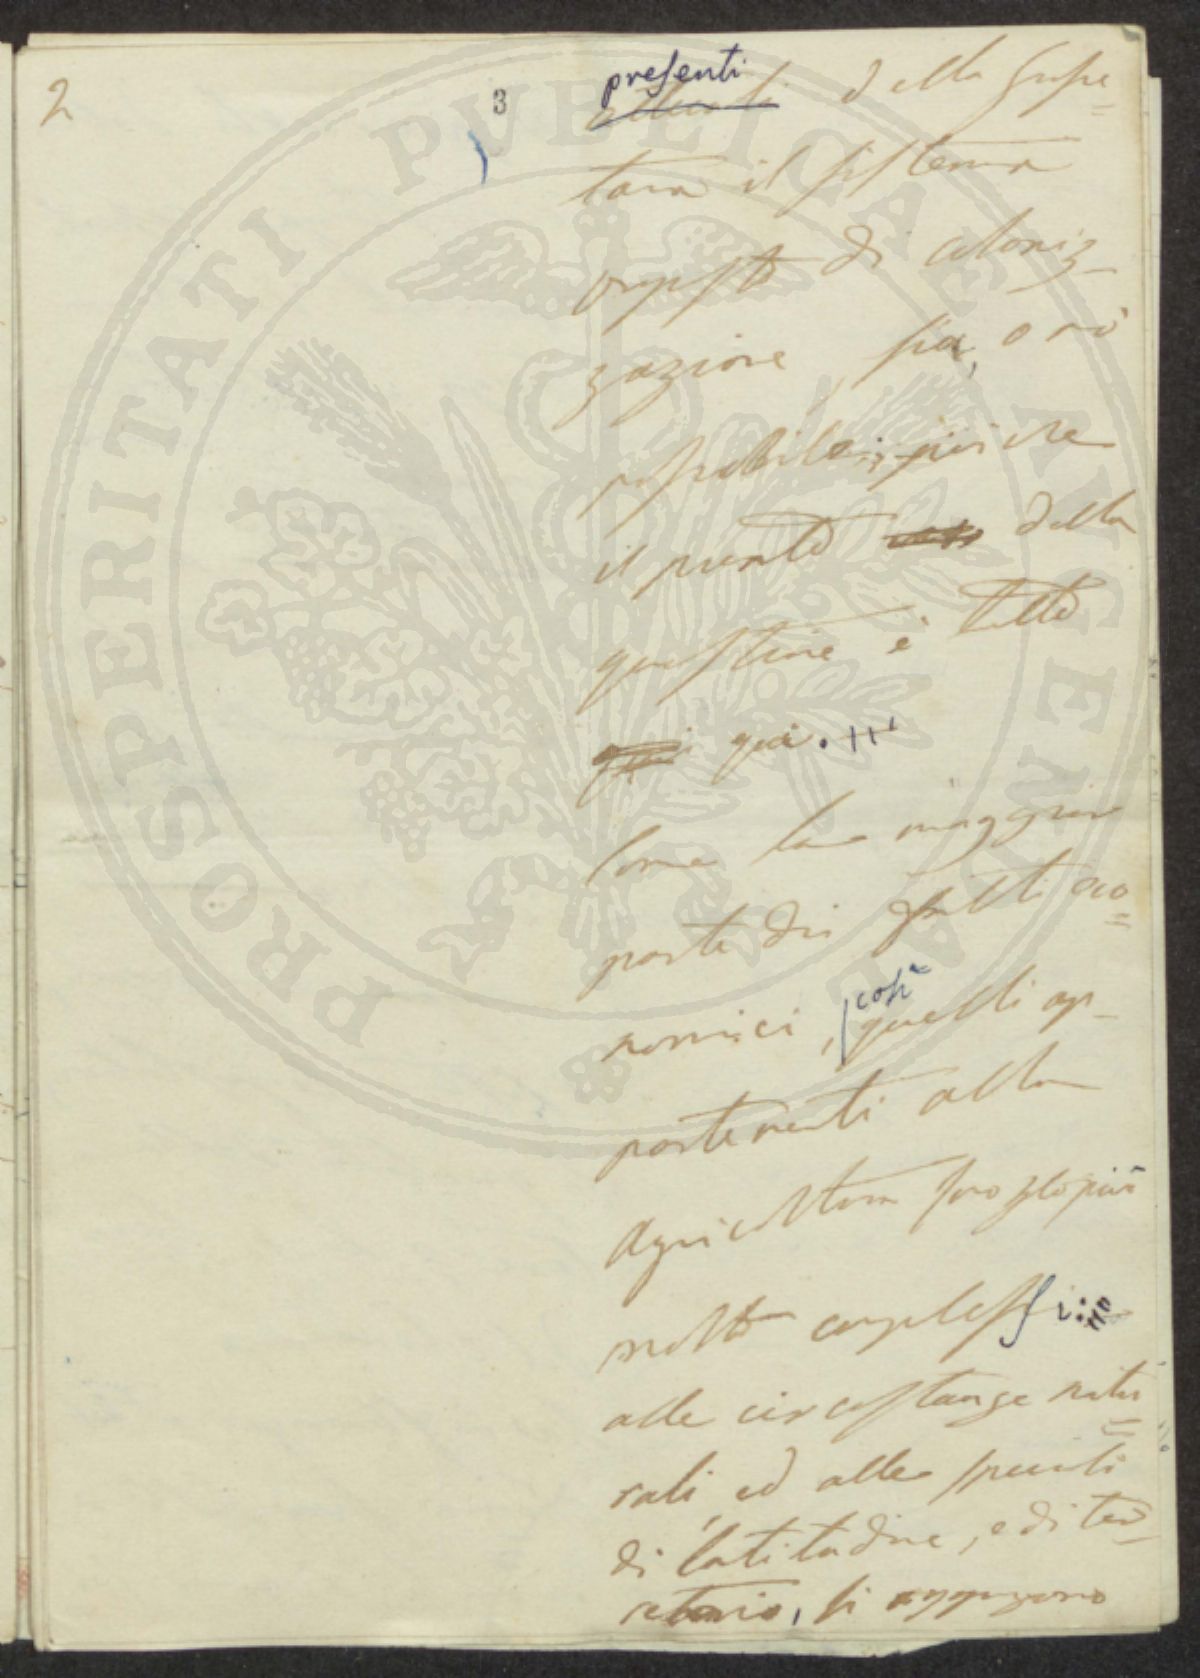 2
3
presenti
attuali della suspe=
tara il sistema
proposto di coloniz-
zazione, sia, o nò
possibile; più che
il punto della
questione è tutto
qui.
Come la maggior
parte dei fatti eco=
nomici, così quelli ap-
partenenti alla
Agricoltura sono più
molto complessi:
alle circostanze natu=
rali, ed alle speciali
di latitudine, e di ter-
ritorio, si aggiungono
PROSPERITATI PVBLICAE AVGENDAE